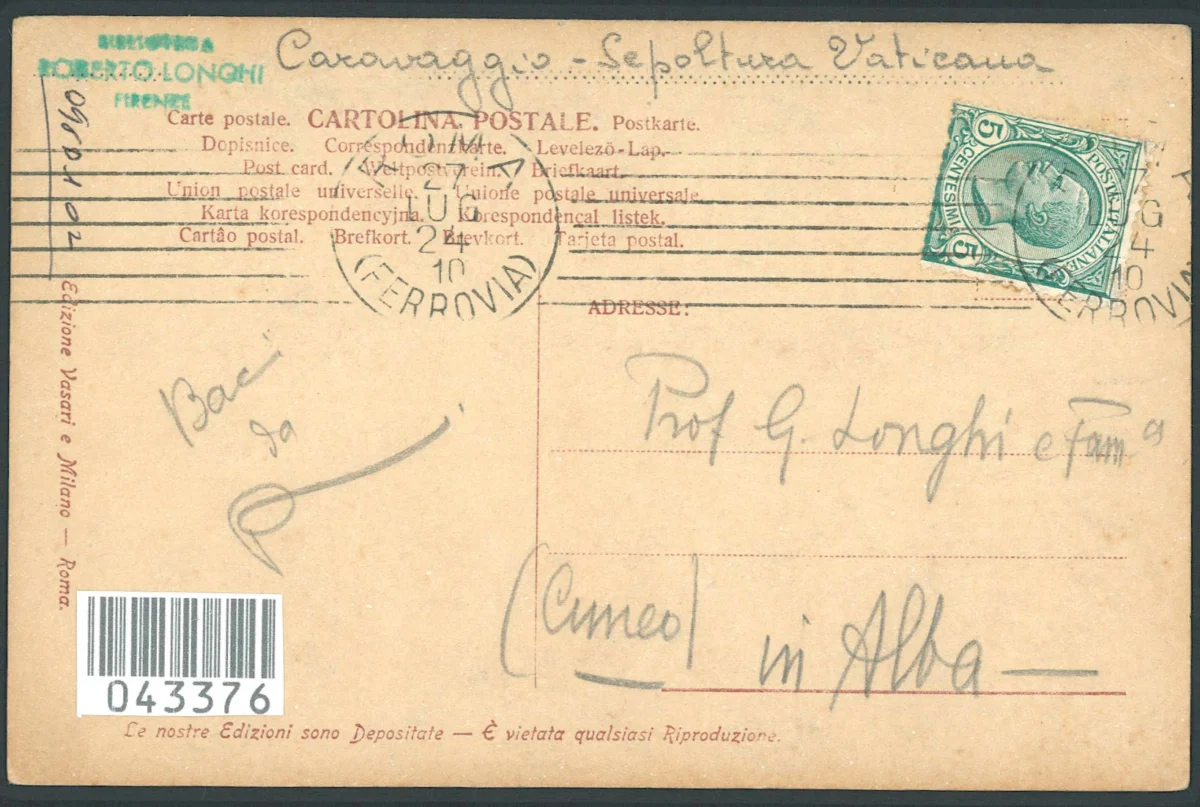 BIBLIOTECA
ROBERTO LONGHI
FIRENZE
Caravaggio - Sepoltura Vaticana
0980102
Carte postale. CARTOLINA POSTALE. Postkarte.
Dopisnice. Correspondenzkarte. Levelező-Lap.
Post card. Weltpostverein. Briefkaart.
Union postale universelle. Unione postale universale.
Karta korespondencyjna. Korespondencal listek.
Cartão postal. Brefkort. Brevkort. Tarjeta postal.
ROMA
27
LUG
24
10
(FERROVIA)
POSTE ITALIANE
5 CENTESIMI 5
LUG
10
FERROVIA
ADRESSE:
Baci
da
R
Prof G. Longhi e Famª
(Cuneo) in Alba
Edizione Vasari e Milano — Roma.
043376
Le nostre Edizioni sono Depositate — È vietata qualsiasi Riproduzione.